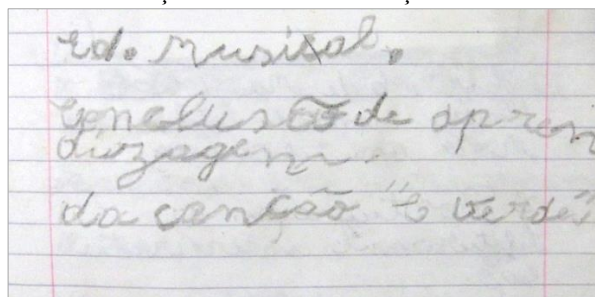 Ed. Musical.
Conclusão de apren
dizagem.
da canção "o verde"